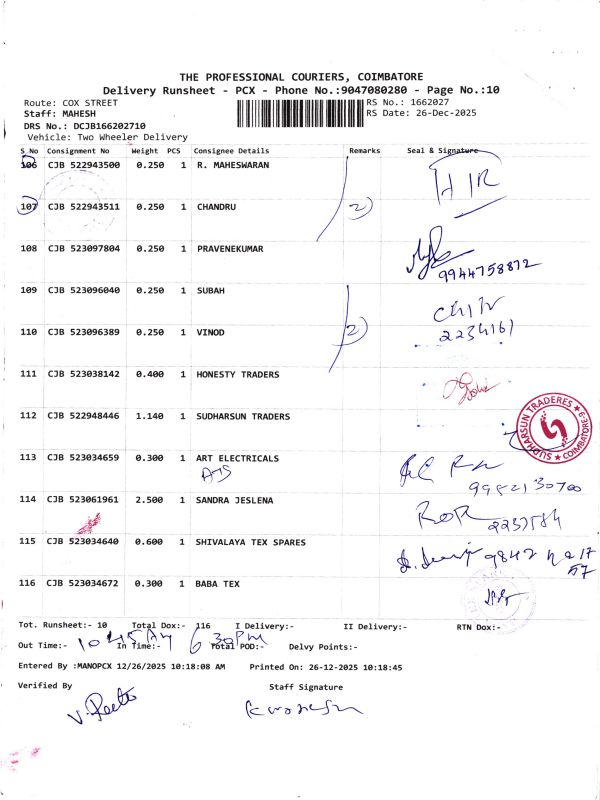 THE PROFESSIONAL COURIERS, COIMBATORE
Delivery Runsheet - PCX - Phone No.:9047080280 - Page No.:10
Route: COX STREET RS No.: 1662027
Staff: MAHESH RS Date: 26-Dec-2025
DRS No.: DCJB166202710
Vehicle: Two Wheeler Delivery
S No Consignment No Weight PCS Consignee Details Remarks Seal & Signature
106 CJB 522943500 0.250 1 R. MAHESWARAN
107 CJB 522943511 0.250 1 CHANDRU 2)
108 CJB 523097804 0.250 1 PRAVENEKUMAR
9944758872
109 CJB 523096040 0.250 1 SUBAH
110 CJB 523096389 0.250 1 VINOD 2) 2234161
111 CJB 523038142 0.400 1 HONESTY TRADERS
112 CJB 522948446 1.140 1 SUDHARSUN TRADERS
SUDHARSUN TRADERES
COIMBATORE-9
113 CJB 523034659 0.300 1 ART ELECTRICALS
114 CJB 523061961 2.500 1 SANDRA JESLENA
115 CJB 523034640 0.600 1 SHIVALAYA TEX SPARES
116 CJB 523034672 0.300 1 BABA TEX
Tot. Runsheet:- 10 Total Dox:- 116 I Delivery:- II Delivery:- RTN Dox:-
Out Time:- 10 45 AM In Time:- 6 30 PM Total POD:- Delvy Points:-
Entered By :MANOPCX 12/26/2025 10:18:08 AM Printed On: 26-12-2025 10:18:45
Verified By Staff Signature